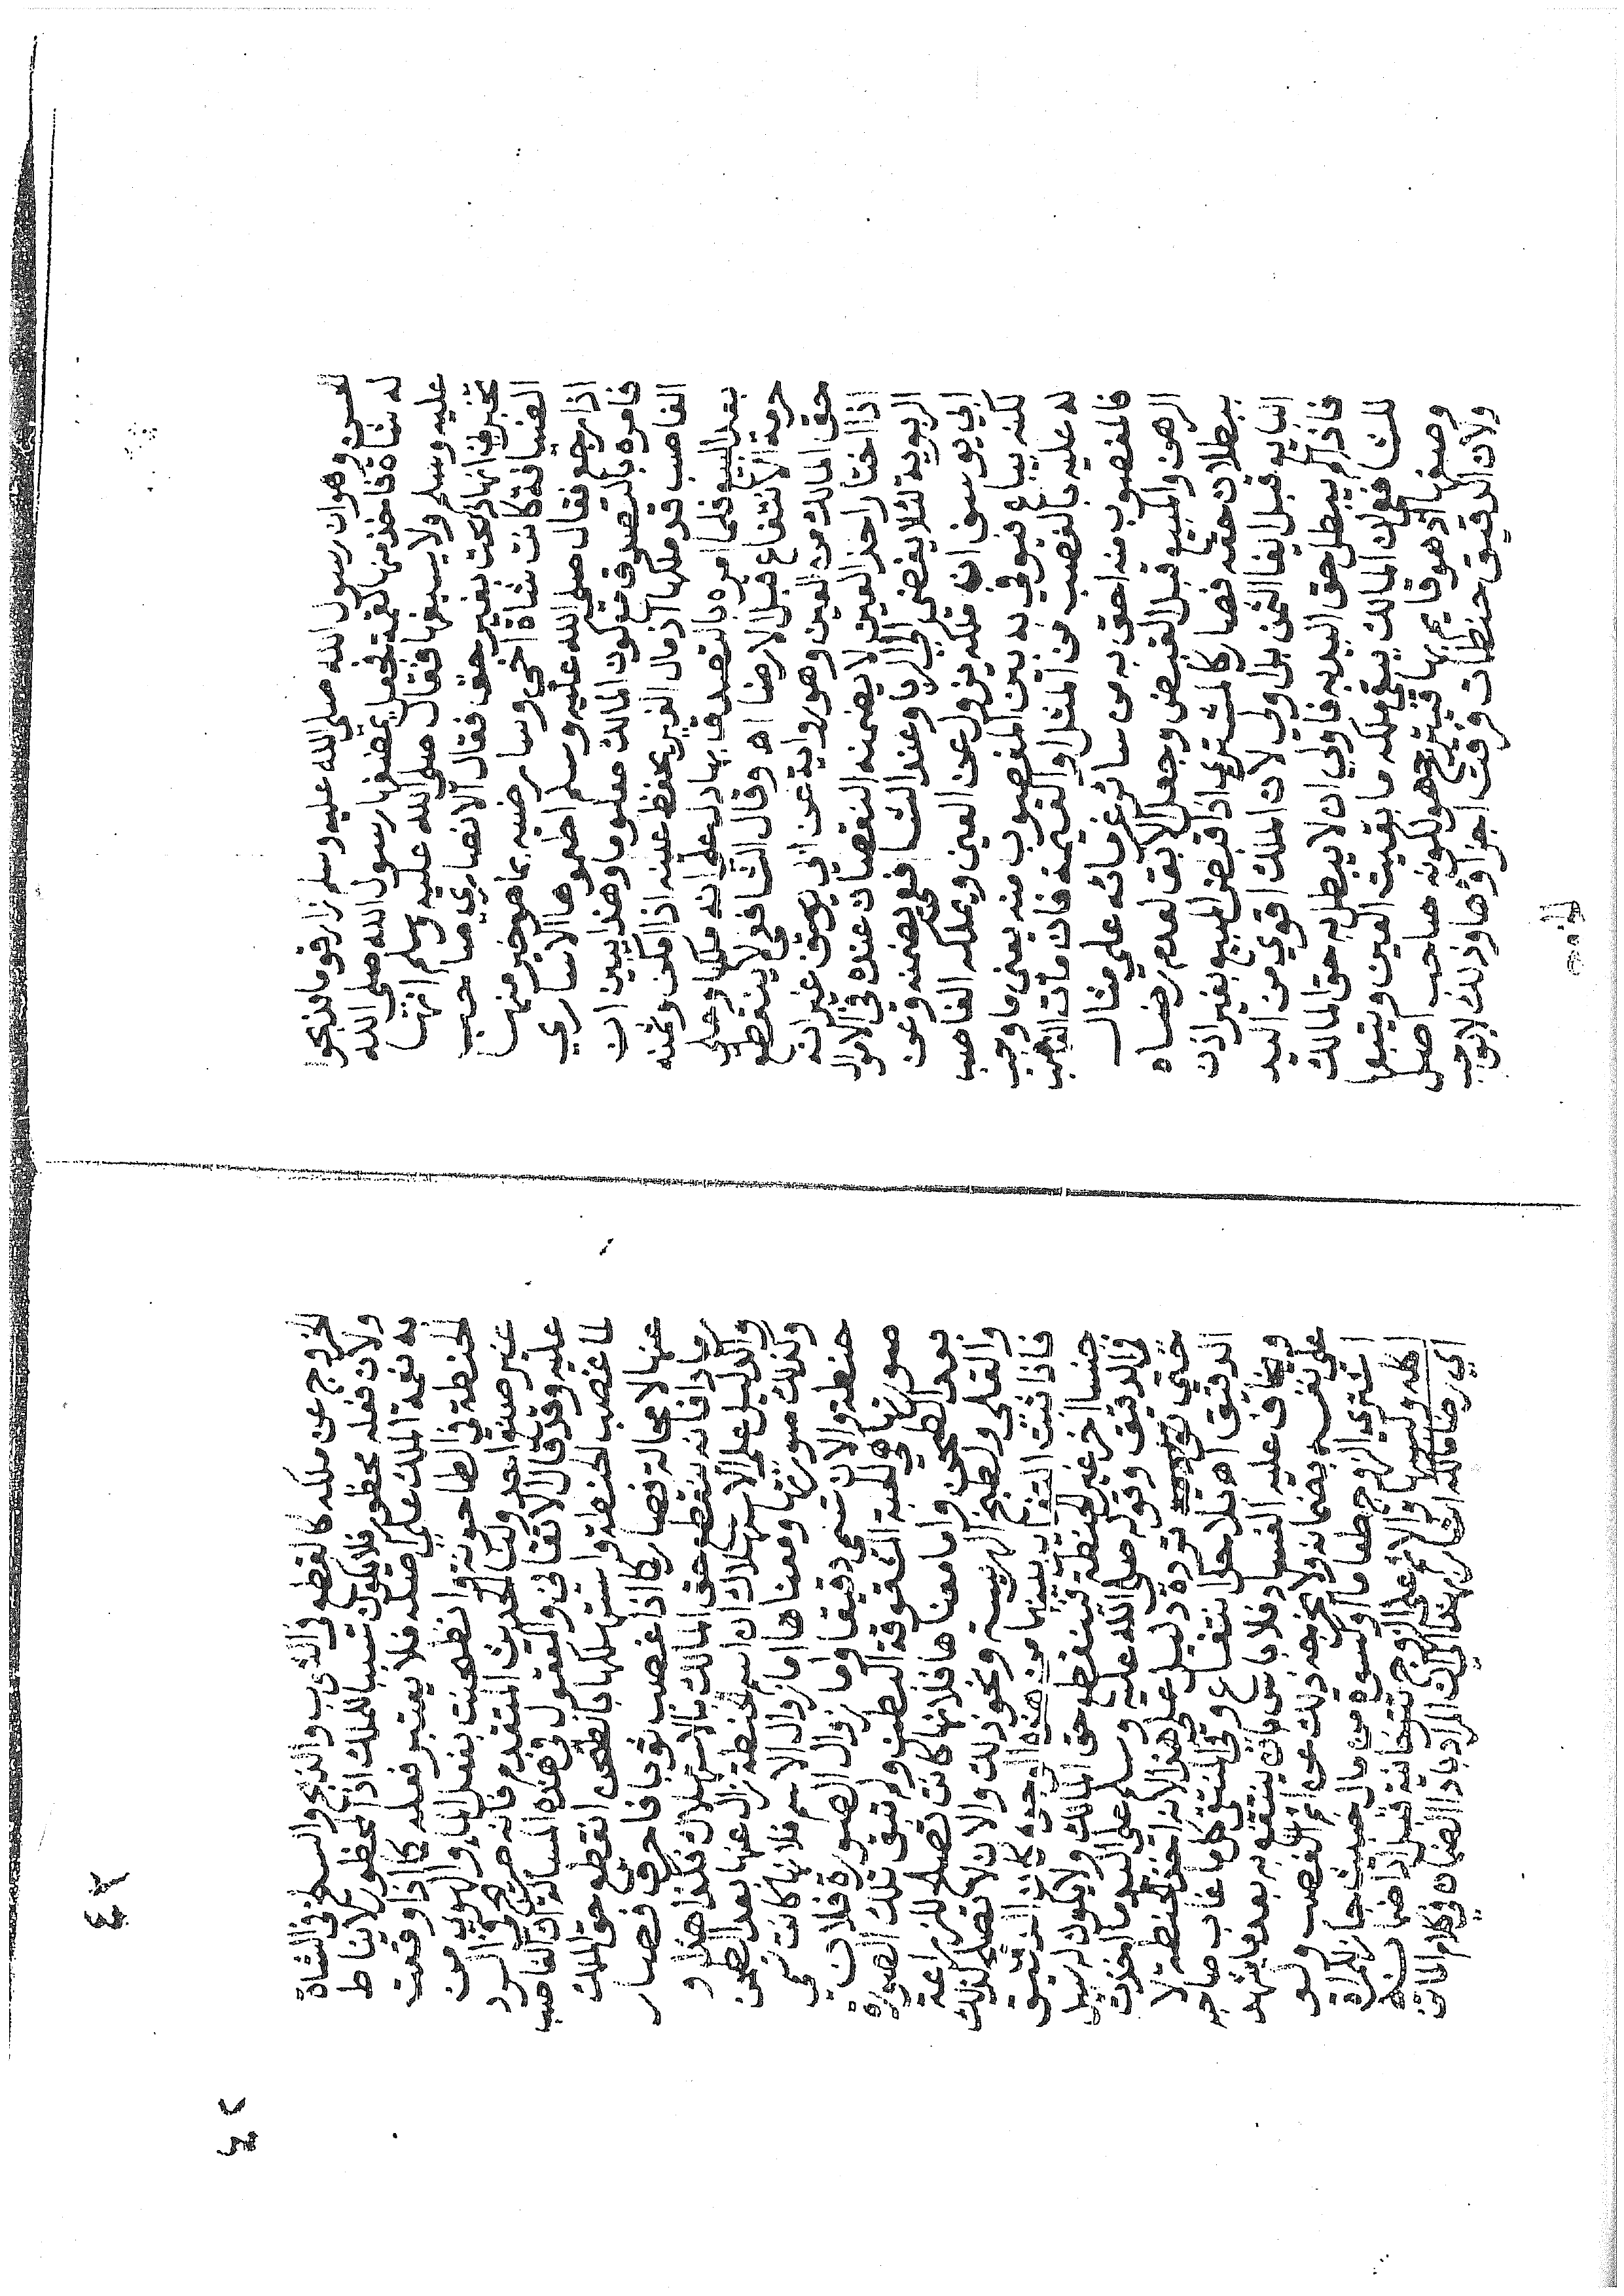 لحسن وهو ان رسول الله صلى الله عليه وسلم زار قوما فذبحوا
له شاة فاخذ منها لقمة فجعل يمضغها رسول الله صلى الله
عليه وسلم ولا يسيغها فقال صلى الله عليه وسلم انها
تخبرني انها ذبحت بغير حق فقال الانصاري صاحب
الضيافة كانت شاة اخي وسارضيه بما هو خير منها
اذا رجع فقال صلى الله عليه وسلم اطعموها الاساري
فامره بالتصدق مع كون المالك معلوما وهذا يبين ان
الغاصب قد ملكها اذ مال الغير يحفظ عينه اذا امكن وثمنه
بعد البيع فلما امره بالتصدق بها دل علي انه ملكها وعلي
حرمة الانتفاع قبل الارضا اه وقال الشافعي لا ينقطع
حق المالك من العين وهو رواية عن ابي يوسف غير انه
اذا اختار اخذ العين لا يضمنه النقصان عنده في الاموال
الربوية لئلا يفضي الي الربا وعند الشافعي يضمنه وعن
ابي يوسف ان ملكه يزول عن العين ويملكه الغاصب
لكنه يباع فيوفي به دين المغصوب منه يعني ما وجب
له عليه بالغصب من المثل او القيمة فان مات الغاصب
فالمغصوب منه احق به من سائر غرمائه علي مثال
الرهن والمبيع قبل القبض وجعل الآبق لعدم رضاه
ببطلان حقه فصار كالمشتري اذا قبض المبيع بغير اذن
البايع قبل ايفا الثمن بل اولي لان الملك اقوي من اليد
فاذا لم يبطل حق اليد به فاولي ان لا يبطل به حق المالك
للشافعي ان المالك يبقي ملكه ما بقيت العين ويتبعها
وصفها اذ هو قايم بها فيترجح هو لكونه صاحب اصل
ولان الدقيق حنطات فرقت اجزاؤها وذلك لا يوجب
٤٢
الخروج عن ملكه كالقطع في الثوب والذبح والسلخ في الشاة
ولان فعله محظور فلا يكون سببا للملك اذ المحظور لا يناط
به نعمة الملك علي اصله فلا يعتبر فعله كما اذا وقعت
الحنطة في الطاحونة وانطحنت بفعل الماء او الهوي من
غير صنع احد ولنا الحديث المتقدم فانه صريح في الرد
عليه وقد قال الاتقاني والمعقول في هذه المسالة ان الغاصب
لما غصب الحنطة واستهلكها بالطحن انقطع حق المالك
عنها لا محالة فصار كما اذا غصب ثوبا فاحرقه فصار
رمادا فانه ينقطع حق المالك بالاستهلاك فكذا هذا و
والدليل علي الاستهلاك ان اسم الحنطة زال عنها بعد الطحن
وكذلك صورتها ومعناها اما زوال الاسم فلانها كانت تسمي
حنطة والان تسمي دقيقا واما زوال الصورة فلان
صورتها هي الحبة المشقوقة البطن ولم تبق تلك الصورة
بعد الطحن واما معناها فلانها كانت تصلح للزراعة
والقلي ولطبخ الهريسة ونحو ذلك والان لا تصلح لذلك
فاذا ثبت التغاير بينهما من هذه الوجوه كان الدقيق
جنسا اخر غير الحنطة فينقطع حق المالك ولا يكون له سبيل
في الدقيق وقوله صلي الله عليه وسلم علي اليد ما اخذت
حتي ترده دليل علي هذا لانه اخذ الحنطة لا
الدقيق اه بلا حل انتفاع وفي المنتقي كل ما غاب صاحبه
ويخاف عليه الفساد فلا باس بان ينتفع به بعد ما يشهد
علي نفسه بضمانه ولا يخرجه ذلك عن اثم الغصب ولو
اشتري الزوج طعاما او كسوة من مال خبيث جاز للمراة
اكله ولبسها والاثم علي الزوج تتخانية قبل اداء ضمانه
اي رضا مالكه اشار بهذا الي ان المراد باداء الضمان في كلام الماتن